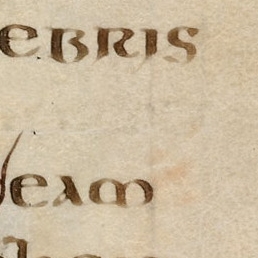 ebris
eam